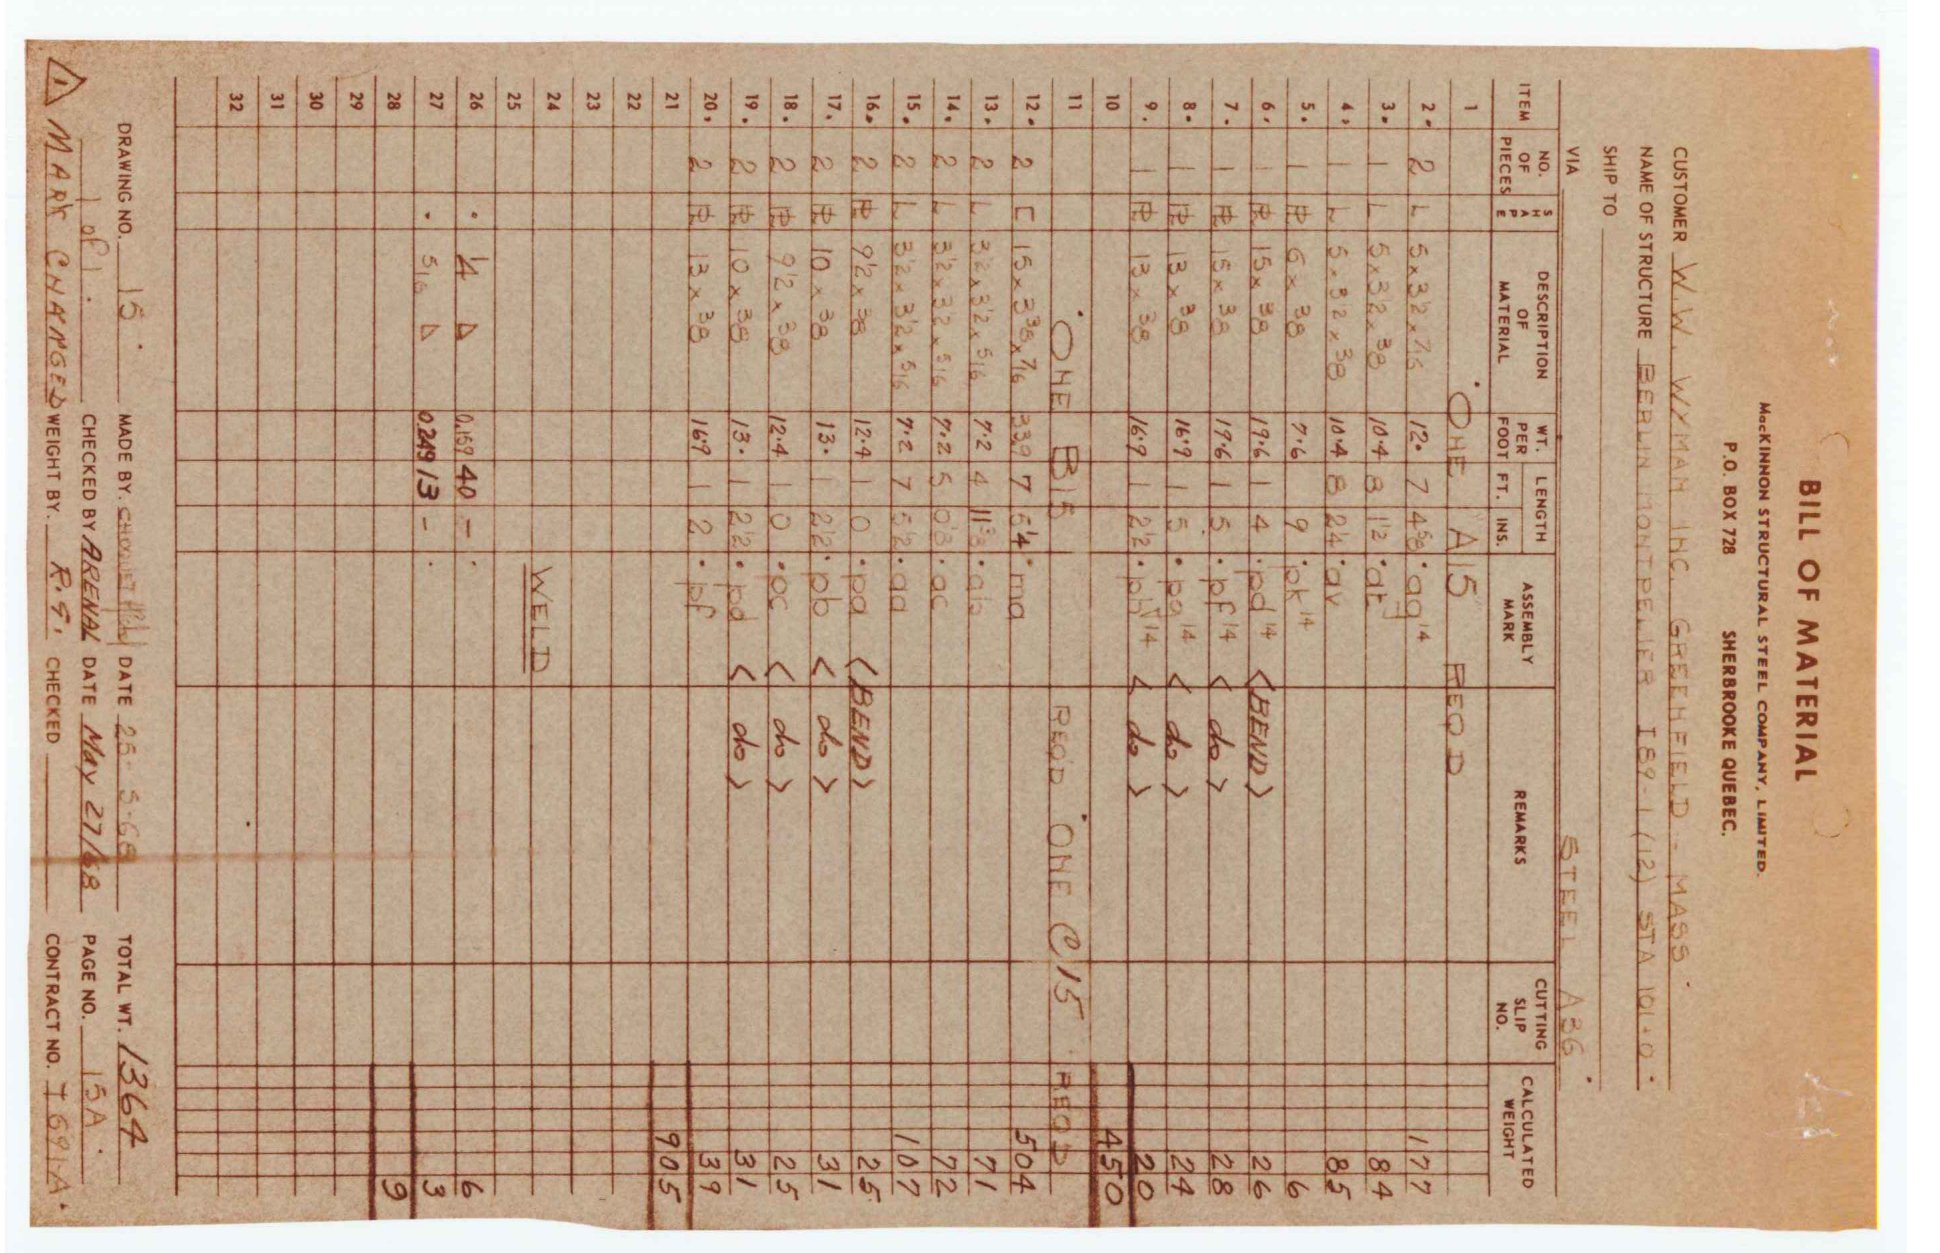 BILL OF MATERIAL
MacKINNON STRUCTURAL STEEL COMPANY, LIMITED.
P.O. BOX 728 SHERBROOKE QUEBEC.
CUSTOMER W.W. WYMAN INC. GREENFIELD - MASS.
NAME OF STRUCTURE BERLIN MONTPELIER I89-1(12) STA 101+0
SHIP TO
VIA STEEL A36
ITEM NO. OF PIECES SHAPE DESCRIPTION OF MATERIAL WT. PER FOOT LENGTH FT. INS. ASSEMBLY MARK REMARKS CUTTING SLIP NO. CALCULATED WEIGHT
1 ONE A15 REQD
2. 2 L 5x3½x7/16 12. 7 4⅝ ag14 177
3. 1 L 5x3½x⅜ 10.4 8 1½ at 84
4. 1 L 5x3½x⅜ 10.4 8 2¼ av 85
5. 1 PL 6x⅜ 7.6 9 pk14 6
6. 1 PL 15x⅜ 19.6 1 4 pd14 <BEND> 26
7. 1 PL 15x⅜ 19.6 1 5 pf14 < do > 28
8. 1 PL 13x⅜ 16.9 1 5 pg14 < do > 24
9. 1 PL 13x⅜ 16.9 1 2½ ph14 < do > 20
10 450
11 ONE B15 REQ'D ONE C15 REQD
12. 2 [ 15x3⅜x7/16 33.9 7 5¼ ma 504
13. 2 L 3½x3½x5/16 7.2 4 11⅜ ab 71
14. 2 L 3½x3½x5/16 7.2 5 0⅛ ac 72
15. 2 L 3½x3½x5/16 7.2 7 5½ aa 107
16. 2 PL 9½x⅜ 12.4 1 0 pa <BEND> 25
17. 2 PL 10x⅜ 13. 1 2½ pb < do > 31
18. 2 PL 9½x⅜ 12.4 1 0 pc < do > 25
19. 2 PL 10x⅜ 13. 1 2½ pd < do > 31
20. 2 PL 13x⅜ 16.9 1 2 pf 39
21 905
22
23
24 WELD
25
26 ¼ △ 0.159 40 - 6
27 5/16 △ 0.249 13 - 3
28 9
29
30
31
32
DRAWING NO. 15 MADE BY. DATE 25-5-68 TOTAL WT. 1364
1 of 1. CHECKED BY ARENAL DATE May 27/68 PAGE NO. 15A
△1 MARK CHANGED WEIGHT BY. R.G. CHECKED CONTRACT NO. I 691A.